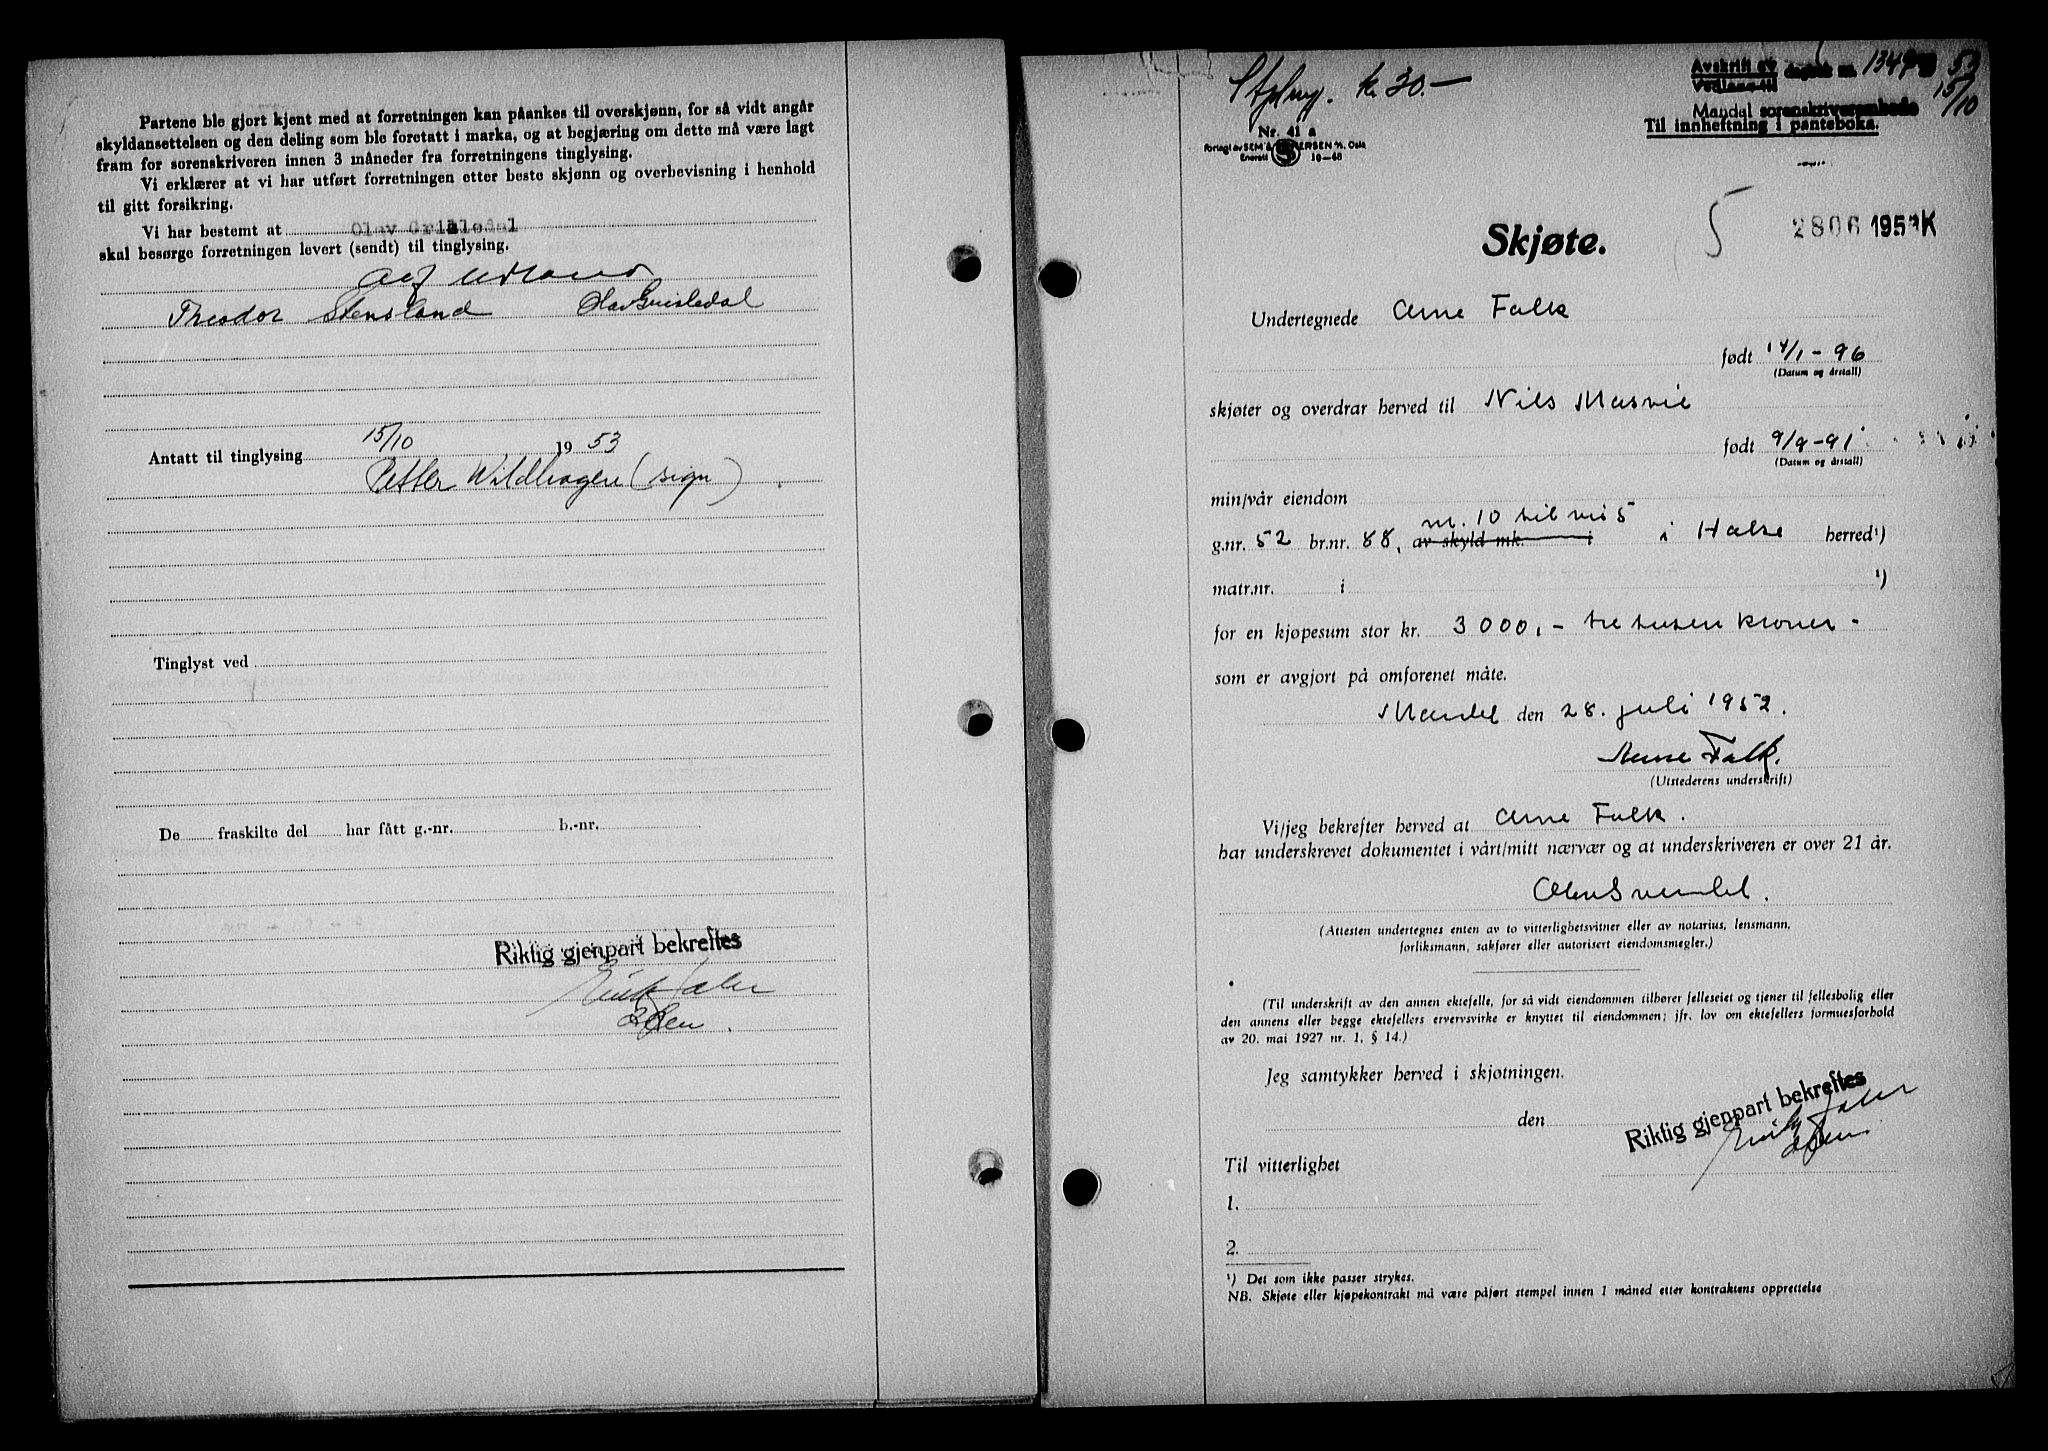 Partene ble gjort kjent med at forretningen kan påankes til overskjønn, for så vidt angår
skyldansettelsen og den deling som ble foretatt i marka, og at begjæring om dette må være lagt
fram for sorenskriveren innen 3 måneder fra forretningens tinglysing.
Vi erklærer at vi har utført forretningen etter beste skjønn og overbevisning i henhold
til gitt forsikring.
Vi har bestemt at Olav Grisledal
skal besørge forretningen levert (sendt) til tinglysing.
Alf Udland
Theodor Stensland Olav Grisledal
Antatt til tinglysing 15/10 1953
Petter Wildhagen (sign)
Tinglyst ved
De fraskilte del har fått g.-nr. b.-nr.
Riktig gjenpart bekreftes
Stplmg. kr 30.-
Avskrift av dagbok nr. 1349 53
Vedlegg til 15/10
Mandal sorenskriverembede
Til innheftning i panteboka.
Nr. 41 a
Forlagt av SEM & STENERSEN A/S, Oslo
Enerett 10—48
5
2806 1953K
Skjøte.
Undertegnede Arne Falk
født 14/1 - 96
(Datum og årstall)
skjøter og overdrar herved til Nils Masvie
født 9/9 - 91
(Datum og årstall)
min/vår eiendom
nr. 10 til nr. 5
g.nr. 52 br.nr. 88, av skyld mk. i i Halse herred¹)
matr.nr. i ¹)
for en kjøpesum stor kr. 3000,- tre tusen kroner -
som er avgjort på omforenet måte.
Mandal den 28. juli 1952.
Arne Falk.
(Utstederens underskrift)
Vi/jeg bekrefter herved at Arne Falk.
har underskrevet dokumentet i vårt/mitt nærvær og at underskriveren er over 21 år.
(Attesten undertegnes enten av to vitterlighetsvitner eller av notarius, lensmann,
forliksmann, sakfører eller autorisert eiendomsmegler.)
(Til underskrift av den annen ektefelle, for så vidt eiendommen tilhører felleseiet og tjener til fellesbolig eller
den annens eller begge ektefellers ervervsvirke er knyttet til eiendommen; jfr. lov om ektefellers formuesforhold
av 20. mai 1927 nr. 1, § 14.)
Jeg samtykker herved i skjøtningen.
den
Riktig gjenpart bekreftes
Til vitterlighet
1.
2.
¹) Det som ikke passer strykes.
NB. Skjøte eller kjøpekontrakt må være påført stempel innen 1 måned etter kontraktens opprettelse